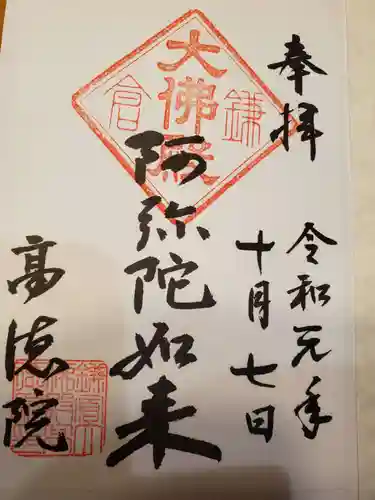 奉拝
令和元年
十月七日
大佛殿
鎌
倉
阿弥陀如来
高徳院